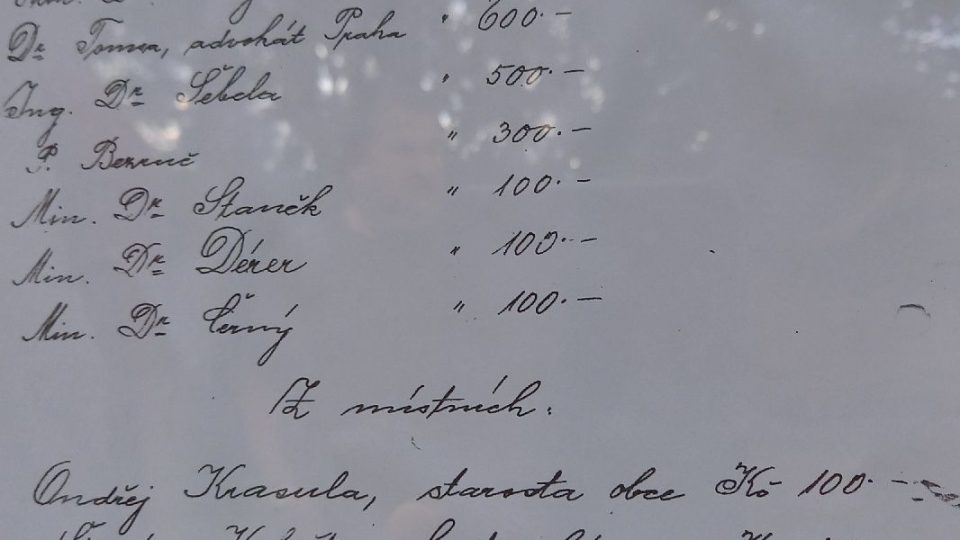 Dr Tomsa, advokát Praha " 600.–
Ing. Dr Šebela " 500.–
P. Bezruč " 300.–
Min. Dr Staněk " 100.–
Min. Dr Dérer " 100.–
Min. Dr Černý " 100.–
Z místních:
Ondřej Krasula, starosta obce Kč 100.–